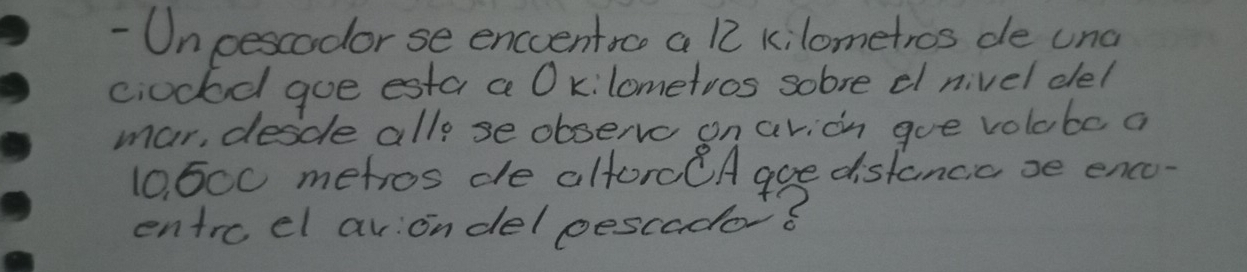 - Un pescador se encuentra a 12 kilometros de una
ciudad que esta a 0 kilometros sobre el nivel del
mar, desde alli se observa un avión que volaba a
10,600 metros de altura ¿A que distancia se encu-
entra el avión del pescador?